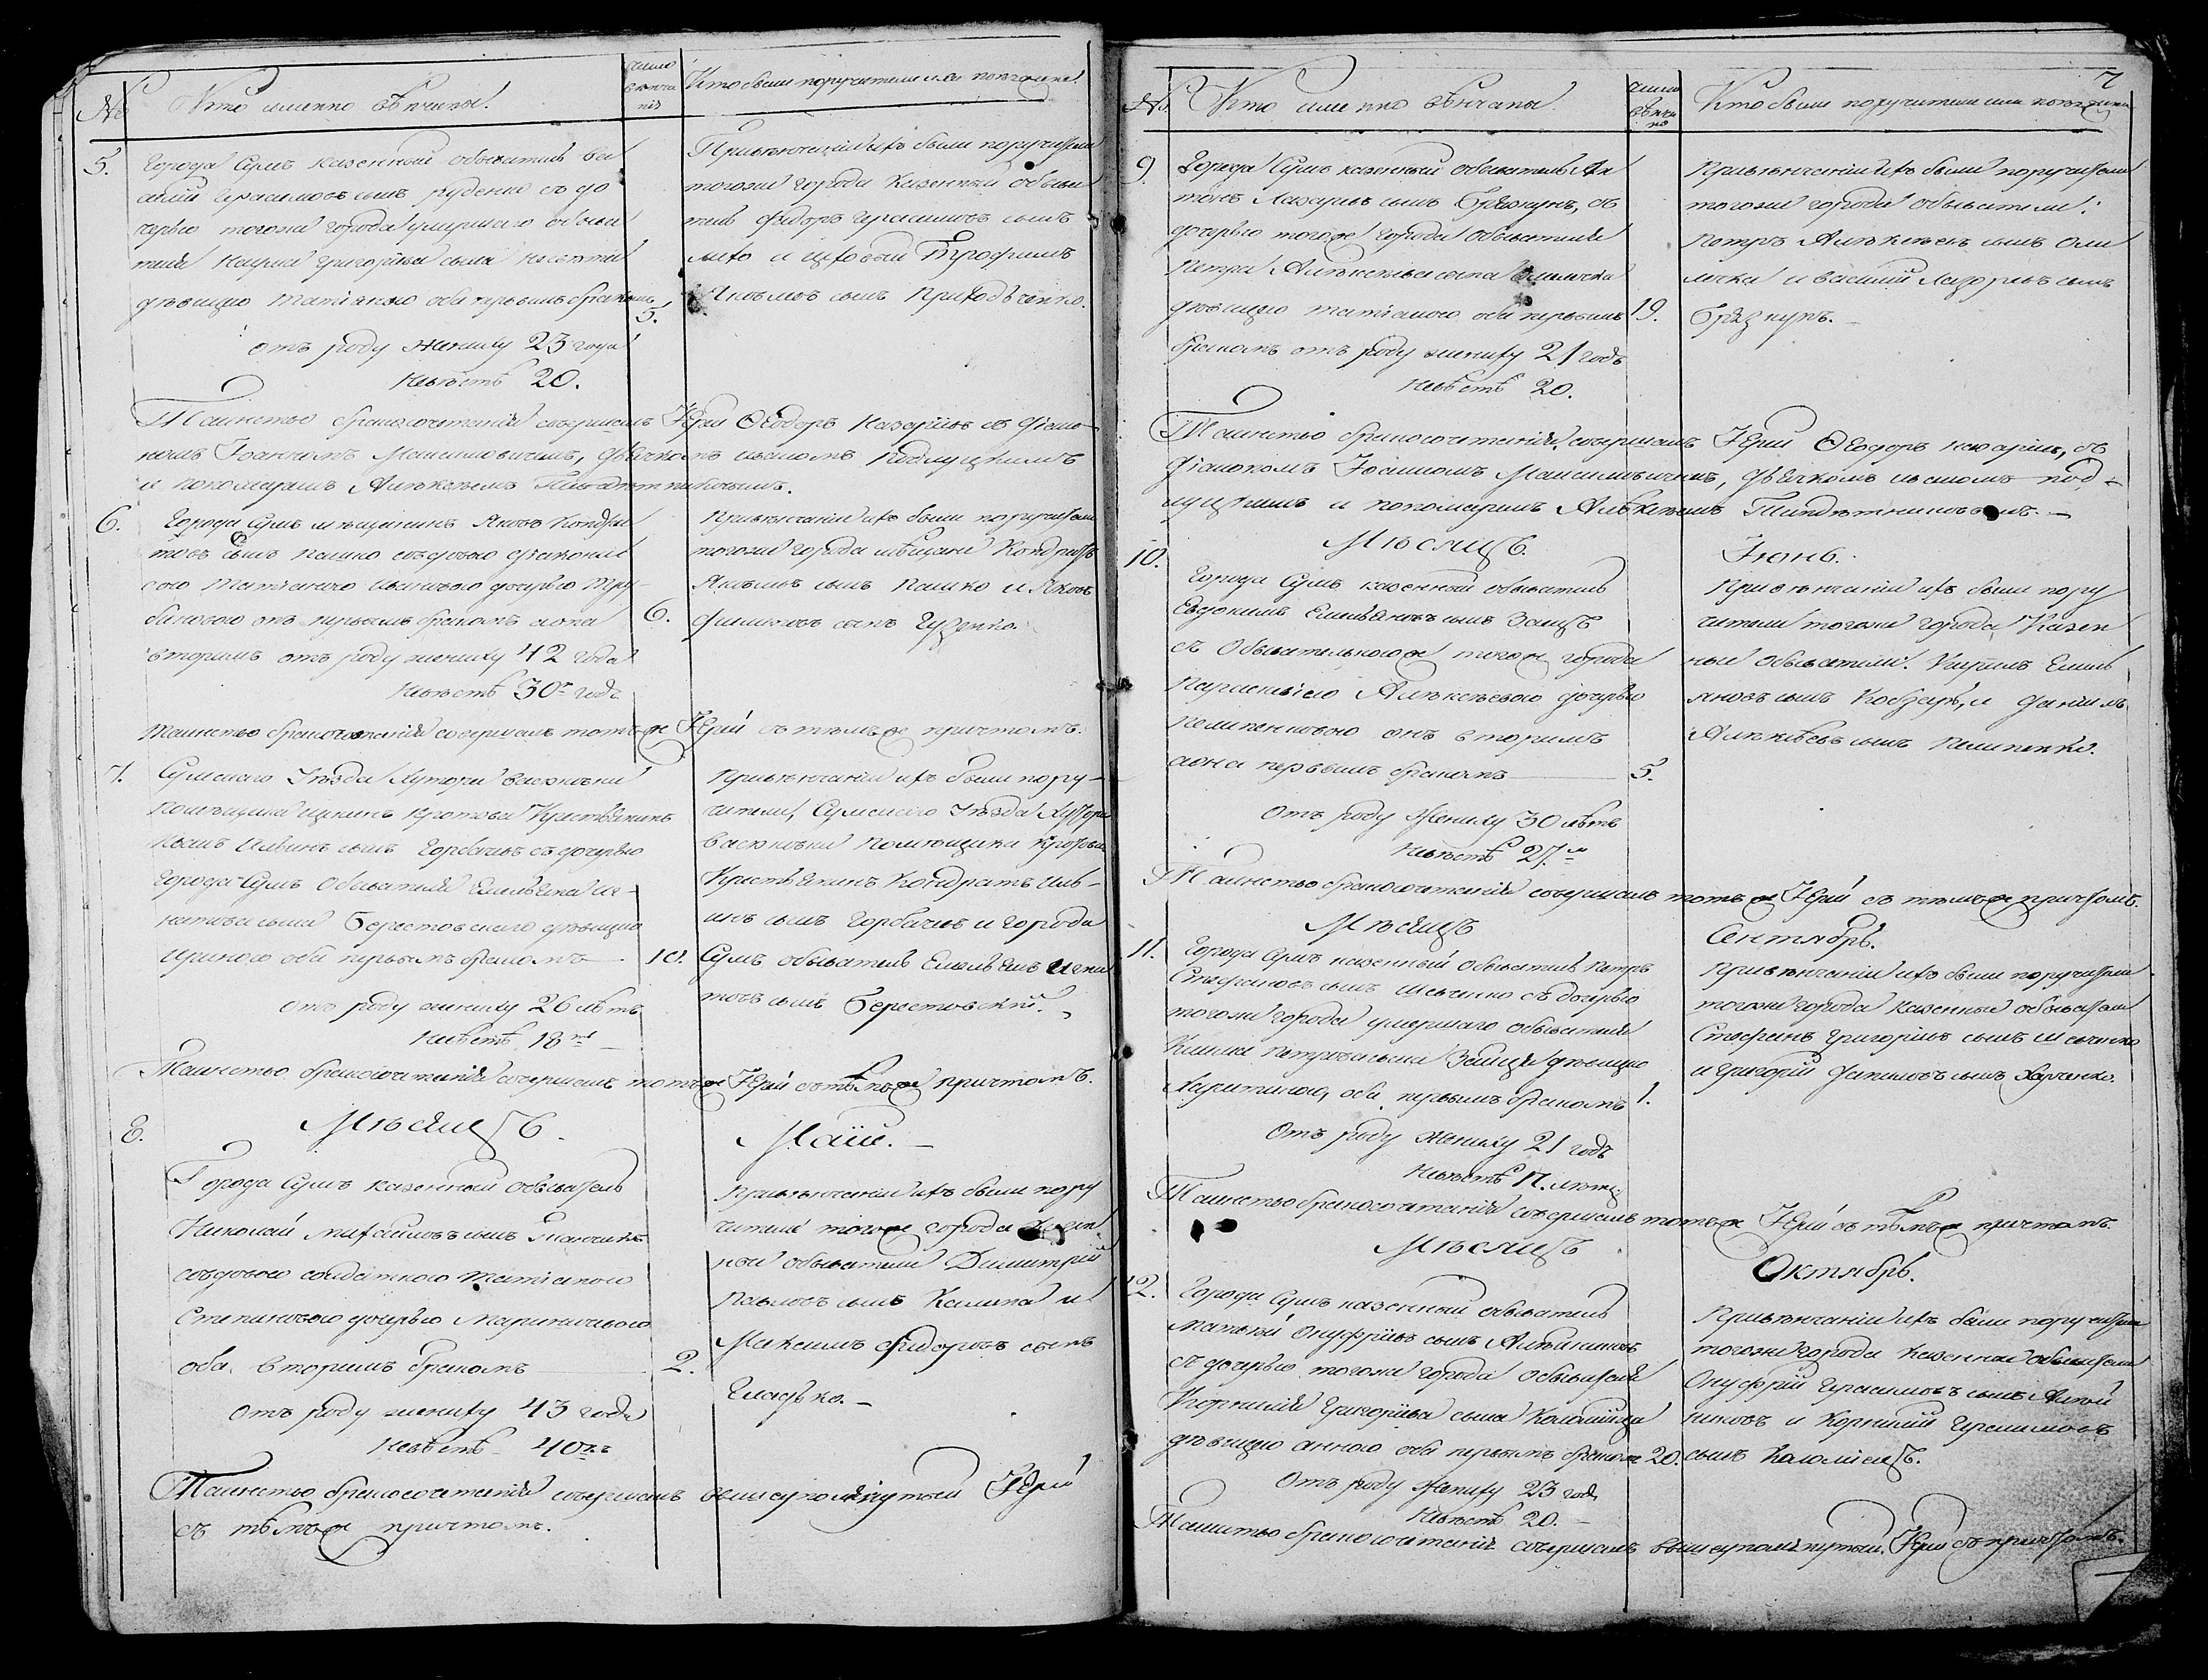 № Кто именно вѣнчаны.
число вѣнчанія
Кто были поручители или поезжане
5.
Города Сумъ казенный обыватель Ва
силій Герасимовъ сынъ Руденко съ до
черью тогожъ города умершаго обыва
теля Наума Григорьева сына
дѣвицею Татіаною оба первымъ бракомъ
5.
отъ роду жениху 23 года
невѣстѣ 20.
При вѣнчаніи ихъ были поручители
тогожъ города Казенный обыва
тель Фидоръ Герасимовъ сынъ
и цеховый Трофимъ
Яковлевъ сынъ Приходченко.
Таинство бракосочетанія совершалъ Іерей Ѳеодоръ Назаріевъ съ Діако
номъ Іоанномъ Максимовичемъ, дьячкомъ Иваномъ Подлуцкимъ
и пономаремъ Алексѣемъ
6.
Города Сумъ мѣщанинъ Яковъ Кондра
товъ сынъ Пашко съ вдовою діаконши
сою Татіаною Ивановою дочерью Тру
бановою онъ первымъ бракомъ а она
6.
вторымъ отъ роду жениху 42 года
невѣстѣ 30 годъ
При вѣнчаніи ихъ были поручители
тогожъ города мѣщане Кондратъ
Яковлевъ сынъ Пашко и Яковъ
Филиповъ сынъ Гузенко.
Таинство бракосочетанія совершалъ тотъ же Іерей съ тѣмъ же причтомъ.
7.
Сумскаго Уѣзда Хутора Васюковки
помѣщика Кротова Крестьянинъ
Иванъ Ильинъ сынъ Горбачевъ съ дочерью
города Сумъ Обывателя Емельяна Иг
натьева сына Берестовскаго дѣвицею
Ириною оба первымъ бракомъ
10.
отъ роду жениху 26 лѣтъ
невѣстѣ 18
При вѣнчаніи ихъ были пору
чители, Сумскаго Уѣзда Хутора
Васюковки Помѣщика Кротова
Крестьянинъ Кондратъ Иль
инъ сынъ Горбачевъ и города
Сумъ обыватель Емельянъ Игна
товъ сынъ Берестовскій.
Таинство бракосочетанія совершалъ тотъ же Іерей съ тѣмъ же причтомъ.
Мѣсяцъ
Маій.
8.
Города Сумъ казенный обыватель
Николай Михайловъ сынъ
съ вдовою солдаткою Татіаною
Степановою дочерью Мариничевою
оба вторымъ бракомъ
2.
отъ роду жениху 43 года
невѣстѣ 40
При вѣнчаніи ихъ были пору
чители того же города казен
ныи обыватели Димитрій
Павловъ сынъ Калина и
Максимъ Фидоровъ сынъ
Гладько.
Таинство бракосочетанія совершалъ вышеупомянутый Іерей
съ тѣмъ же причтомъ.
7
№ Кто именно вѣнчаны.
число вѣнчанія
Кто были поручители или поезжане
9.
Города Сумъ казенный обыватель Ан
тонъ Лазаревъ сынъ Брязкунъ, съ
дочерью того же города Обывателя
Петра Алексѣева сына Олиочка
дѣвицею Татіаною оба первымъ
19.
бракомъ отъ роду жениху 21 годъ
невѣстѣ 20.
При вѣнчаніи ихъ были поручители
тогожъ города обыватели:
Петръ Алексѣевъ сынъ Оли
и Василій Лазаревъ сынъ
Брязкунъ.
Таинство бракосочетанія совершалъ Іерей Ѳеодоръ Назаріевъ, съ
Діакономъ Іоанномъ Максимовичемъ, дьячкомъ Иваномъ Под
луцкимъ и пономаремъ Алексѣемъ
Мѣсяцъ
Іюнь.
10.
Города Сумъ казенный обыватель
Евдокимъ Емельяновъ сынъ Заяцъ
съ Обывателькою того же города
Параскевіею Алексѣевою дочерью
Пелипенковою онъ вторымъ
а она первымъ бракомъ
5.
Отъ роду Жениху 30 лѣтъ
Невѣстѣ 27.
При вѣнчаніи ихъ были пору
чители тогожъ города Казен
ные обыватели: Кирилъ Емель
яновъ сынъ Кобзарь, и Даніилъ
Алексѣевъ сынъ Пелипенко.
Таинство бракосочетанія совершалъ тотъ же Іерей съ тѣмъ же причтомъ.
Мѣсяцъ
Сентябрь.
11.
Города Сумъ казенный Обыватель Петръ
Стефановъ сынъ Шевченко съ дочерью
тогожъ города умершаго обывателя
Петрова сына Зайця дѣвицею
Харитиною, оба первымъ бракомъ
1.
Отъ роду жениху 21 годъ
Невѣстѣ 17. лѣтъ
При вѣнчаніи ихъ были поручители
тогожъ города казенные обыватели
Стефанъ Григорьевъ сынъ Шевченко
и Григорій сынъ
Таинство бракосочетанія совершалъ тотъ же Іерей съ тѣмъ же причтомъ.
Мѣсяцъ
Октябрь.
12.
Города Сумъ казенный обыватель
Матвѣй Онуфріевъ сынъ Алейниковъ
съ дочерью тогожъ города обывателя
Корнилія Григорьева сына Коломійца
дѣвицею Анною оба первымъ бракомъ
20.
Отъ роду жениху 23 годъ
Невѣстѣ 20.
При вѣнчаніи ихъ были поручители
тогожъ города казенные обыватели
Онуфрій Герасимовъ сынъ Алей
никовъ и Корнилій Герасимовъ
сынъ Коломіецъ.
Таинство бракосочетанія совершалъ вышеупомянутый Іерей съ причтомъ.